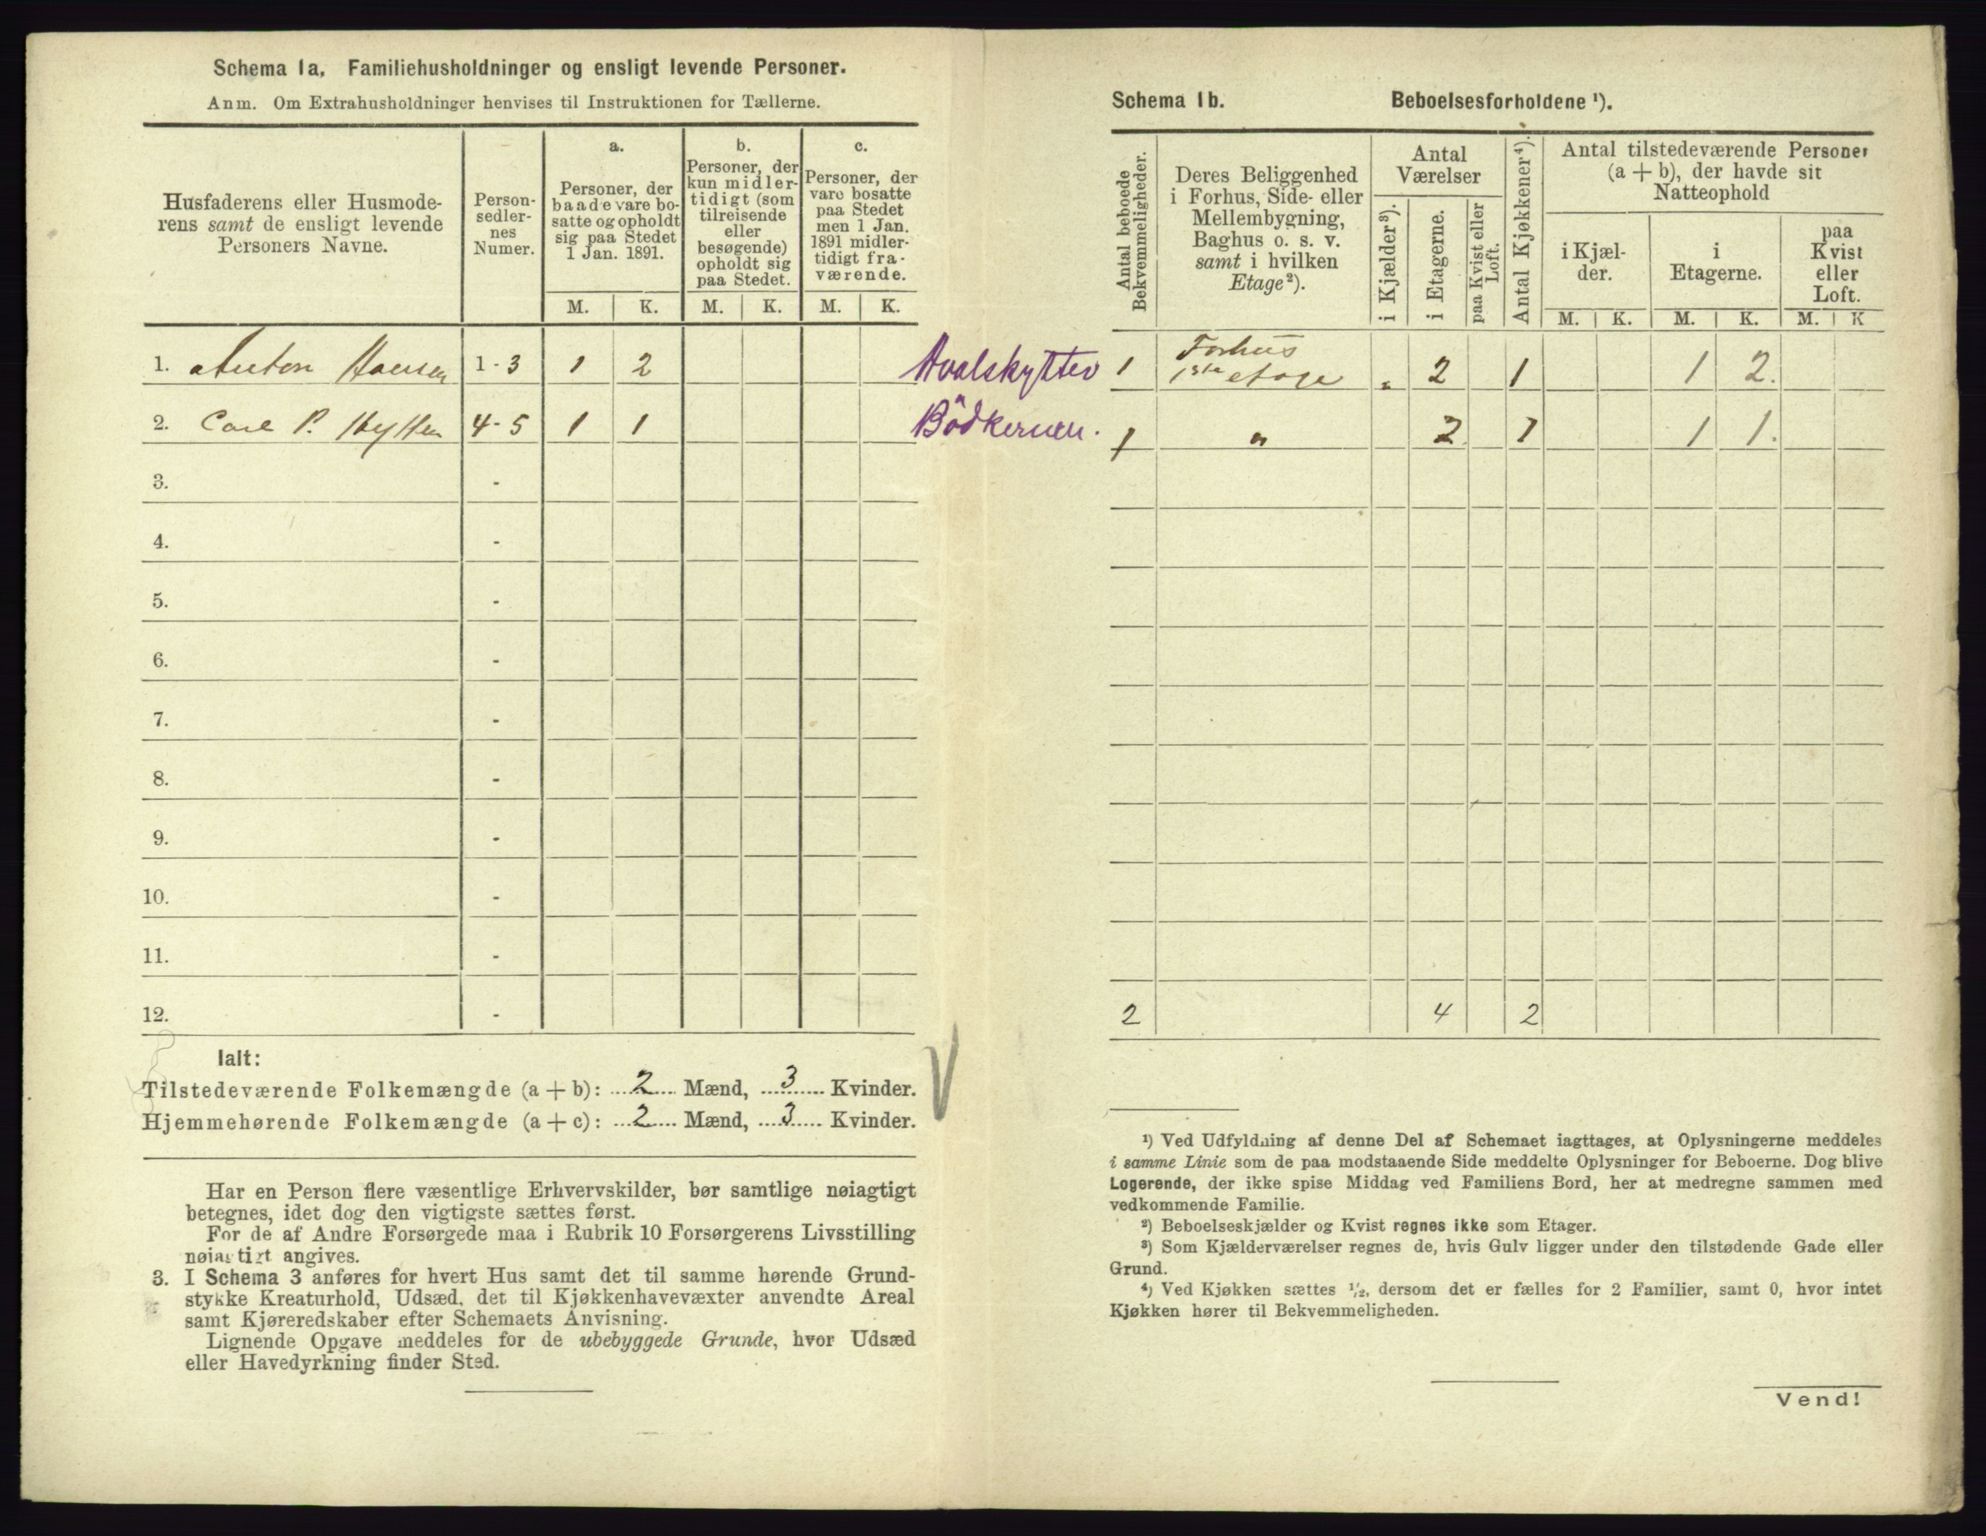 Schema 1a. Familiehusholdninger og ensligt levende Personer.
Anm. Om Extrahusholdninger henvises til Instruktionen for Tællerne.
Husfaderens eller Husmode-
rens samt de ensligt levende
Personers Navne.
Person-
sedler-
nes
Numer.
a.
Personer, der
baade vare bo-
satte og opholdt
sig paa Stedet
1 Jan. 1891.
b.
Personer, der
kun midler-
tidigt (som
tilreisende
eller
besøgende)
opholdt sig
paa Stedet.
c.
Personer, der
vare bosatte
paa Stedet
men 1 Jan.
1891 midler-
tidigt fra-
værende.
M. K. M. K. M. K.
1. Anton Hansen 1-3 1 2 Hvalskytter
2. Carl P. 4-5 1 1 Bödkernen.
3. -
4. -
5. -
6. -
7. -
8. -
9. -
10. -
11. -
12. -
Ialt:
Tilstedeværende Folkemængde (a + b): 2 Mænd, 3 Kvinder.
Hjemmehørende Folkemængde (a + c): 2 Mænd, 3 Kvinder.
Har en Person flere væsentlige Erhvervskilder, bør samtlige nøiagtigt
betegnes, idet dog den vigtigste sættes først.
For de af Andre Forsørgede maa i Rubrik 10 Forsørgerens Livsstilling
nøiagtigt angives.
3. I Schema 3 anføres for hvert Hus samt det til samme hørende Grund-
stykke Kreaturhold, Udsæd, det til Kjøkkenhavevæxter anvendte Areal
samt Kjøreredskaber efter Schemaets Anvisning.
Lignende Opgave meddeles for de ubebyggede Grunde, hvor Udsæd
eller Havedyrkning finder Sted.
Schema 1b. Beboelsesforholdene ¹).
Antal beboede
Bekvemmeligheder.
Deres Beliggenhed
i Forhus, Side- eller
Mellembygning,
Baghus o. s. v.
samt i hvilken
Etage²).
Antal
Værelser
i Kjælder³).
i Etagerne.
paa Kvist eller
Loft.
Antal Kjøkkener⁴).
Antal tilstedeværende Personer
(a + b), der havde sit
Natteophold
i Kjæl-
der.
i
Etagerne.
paa
Kvist
eller
Loft.
M. K. M. K. M. K
1 Forhus
1ste etage " 2 1 1 2.
1 " 2 1 1 1.
2 4 2
¹) Ved Udfyldning af denne Del af Schemaet iagttages, at Oplysningerne meddeles
i samme Linie som de paa modstaaende Side meddelte Oplysninger for Beboerne. Dog blive
Logerende, der ikke spise Middag ved Familiens Bord, her at medregne sammen med
vedkommende Familie.
²) Beboelseskjælder og Kvist regnes ikke som Etager.
³) Som Kjælderværelser regnes de, hvis Gulv ligger under den tilstødende Gade eller
Grund.
⁴) Ved Kjøkken sættes ¹/₂, dersom det er fælles for 2 Familier, samt 0, hvor intet
Kjøkken hører til Bekvemmeligheden.
Vend!